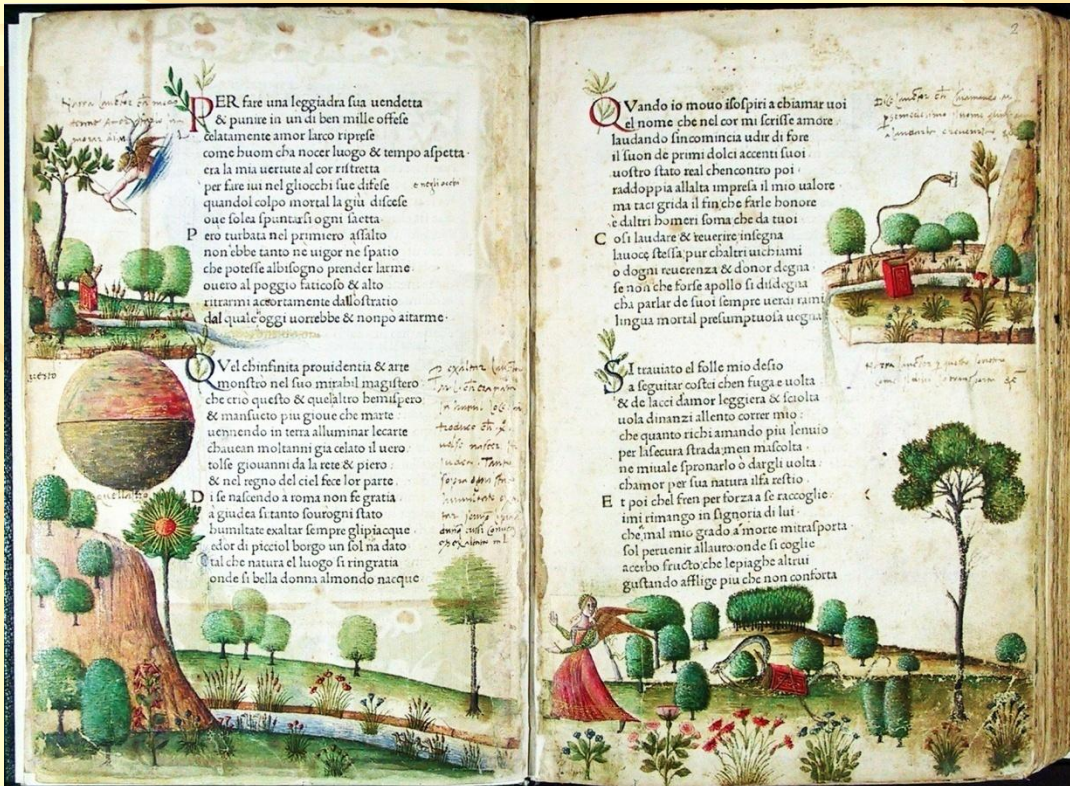 PER fare una leggiadra sua uendetta
& punire in un di ben mille offese
celatamente amor larco riprese
come huom cha nocer luogo & tempo aspetta
era la mia uertute al cor ristretta
per fare iui nel gliocchi sue difese
e negli occhi
quandol colpo mortal la giu discese
oue solea spuntarsi ogni saetta
Pero turbata nel primiero assalto
non ebbe tanto ne uigor ne spatio
che potesse albisogno prender larme
ouero al poggio faticoso & alto
ritrarmi accortamente dallostratio
dal quale oggi uorrebbe & nonpo aitarme
QVel chinfinita prouidentia & arte
monstro nel suo mirabil magistero
che crio questo & quelaltro hemispero
& mansueto piu gioue che marte
uennendo in terra alluminar lecarte
chauean moltanni gia celato il uero
tolse giouanni da la rete & piero
& nel regno del ciel fece lor parte
Di se nascendo a roma non fe gratia
a giudea si tanto sourogni stato
humiltate exaltar sempre glipiacque
edor di picciol borgo un sol na dato
tal che natura el luogo si ringratia
onde si bella donna almondo nacque
2
QVando io mouo isospiri a chiamar uoi
el nome che nel cor mi scrisse amore
laudando sincomincia udir di fore
il suon de primi dolci accenti suoi
uostro stato real chencontro poi
raddoppia allalta impresa il mio ualore
ma taci grida il fin che farle honore
e daltri homeri soma che da tuoi
Cosi laudare & reuerire insegna
lauoce stessa pur chaltri uichiami
o dogni reuerenza & donor degna
se non che forse apollo si disdegna
cha parlar de suoi sempre uerdi rami
lingua mortal presumptuosa uegna
SI trauiato el folle mio desio
a seguitar costei chen fuga e uolta
& de lacci damor leggiera & sciolta
uola dinanzi allento correr mio
che quanto richiamando piu lenuio
per lasecura strada men mascolta
ne miuale spronarlo o dargli uolta
chamor per sua natura ilfa restio
Et poi chel fren per forza a se raccoglie
imi rimango in signoria di lui
che mal mio grado a morte mitrasporta
sol peruenir allauro onde si coglie
acerbo fructo che lepiaghe altrui
gustando afflige piu che non conforta